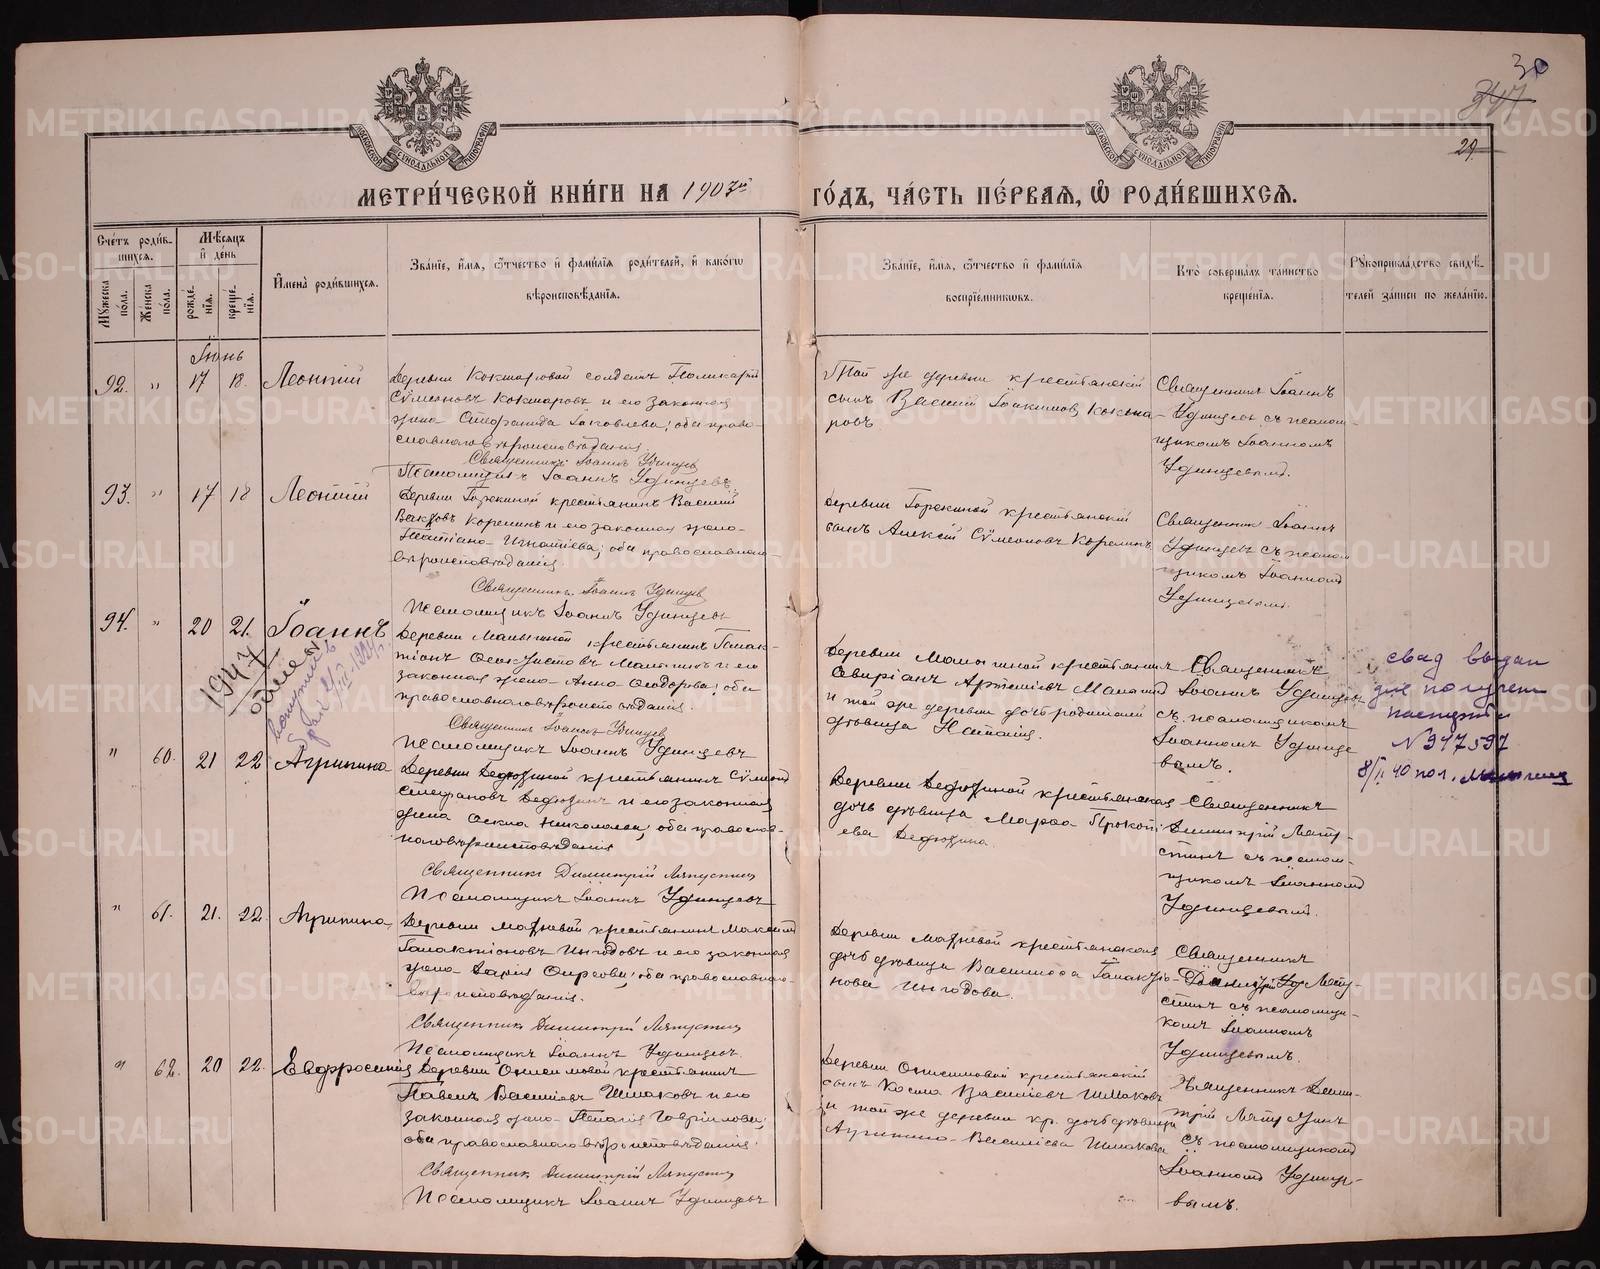 30
347
29
МОСКОВСКОЙ СѴНОДАЛЬНОЙ ТИПОГРАФІИ
МОСКОВСКОЙ СѴНОДАЛЬНОЙ ТИПОГРАФІИ
МЕТРИ́ЧЕСКОЙ КНИ́ГИ НА 1903й ГО́ДЪ, ЧА́СТЬ ПЕ́РВАѦ, Ѿ РОДИ́ВШИХСѦ.
Сче́тъ роди́в-
шихсѧ.
Мꙋжеска по́ла.
Же́нска по́ла.
Мѣ́сѧцъ и҆ де́нь
рожде́-нїѧ.
креще́-нїѧ.
И҆мена̀ роди́вшихсѧ.
Зва́нїе, и҆́мѧ, ѻ҆́тчество и҆ фамилїѧ роди́телей, и҆ како́гѡ
вѣроисповѣ́данїѧ.
Зва́нїе, и҆́мѧ, ѻ҆́тчество и҆ фами́лїѧ
воспрїе́мникѡвъ.
Кто̀ соверша́лъ та́инство
креще́нїѧ.
Рꙋкоприкла́дство свидѣ́-
телей за́писи по жела́нїю.
Іюнь
92. " 17 18. Леонтій
Деревни Кокшаровой солдатъ Поликарпъ
Сѵмеоновъ Кокшаровъ и его законная
жена Стефанида Іаковлева; оба право-
славнаго вѣроисповѣданія
Священникъ Іоаннъ Удинцев
Псаломщикъ Іоаннъ Удинцевъ
Той же деревни крестьянскій
сынъ Василій Іоакимовъ Кокша-
ровъ
Священникъ Іоаннъ
Удинцевъ съ псалом-
щикомъ Іоанномъ
Удинцевымъ.
93. " 17 18 Леонтій
Деревни Горкиной крестьянинъ Василій
Корелинъ и его законная жена
Татіана Игнатіева; оба православнаго
вѣроисповѣданія.
Священникъ Іоаннъ Удинцев
Псаломщикъ Іоаннъ Удинцевъ
Деревни Горкиной крестьянскій
сынъ Алексій Сѵмеоновъ Корелинъ
Священникъ Іоаннъ
Удинцевъ съ псалом-
щикомъ Іоанномъ
Удинцевымъ.
94. " 20 21. Іоаннъ
1947
Деревни Малыгиной крестьянинъ Галак-
тіонъ Малыгинъ и его
законная жена Анна Ѳеодорова; оба
православнаго вѣроисповѣданія.
Священникъ Іоаннъ Удинцев
Псаломщикъ Іоаннъ Удинцевъ
Деревни Малыгиной крестьянинъ
Севиріанъ Артеміевъ Малыгинъ
и той же деревни дочь родителей
дѣвица Наталія.
Священникъ
Іоаннъ Удинцевъ
съ псаломщикомъ
Іоанномъ Удинце
вымъ.
выдан
для получен
паспорта
№ 347597
8/II 40
" 60. 21 22 Агрипина
Деревни Дедюхиной крестьянинъ Сѵмеонъ
Стефановъ Дедюхинъ и его законная
жена Николаева; оба православ-
наго вѣроисповѣданія
Священникъ Димитрій Ляпустинъ
Псаломщикъ Іоаннъ Удинцевъ
Деревни Дедюхиной крестьянская
дочь дѣвица Марѳа Прокопі-
ева Дедюхина.
Священникъ
Димитрій Ляпу-
стинъ съ псалом-
щикомъ Іоанномъ
Удинцевымъ.
" 61. 21. 22. Агрипина
Деревни Махневой крестьянинъ Максимъ
Галактіоновъ Инюдовъ и его законная
жена Дарія; оба православнаго
вѣроисповѣданія.
Священникъ Димитрій Ляпустинъ
Псаломщикъ Іоаннъ Удинцевъ
Деревни Махневой крестьянская
дочь дѣвица Василисса Галактіо-
нова
Священникъ
Димитрій Ляпу-
стинъ съ псаломщи-
комъ Іоанномъ
Удинцевымъ.
" 62. 20 22. Евфросинія
Деревни Анисимовой крестьянинъ
Павелъ Василіевъ Шмаковъ и его
законная жена Пелагія Гавріилова;
оба православнаго вѣроисповѣданія.
Священникъ Димитрій Ляпустинъ
Псаломщикъ Іоаннъ Удинцевъ
Деревни Анисимовой крестьянскій
сынъ Косма Василіевъ Шмаковъ
и той же деревни кр. дочь дѣвица
Агрипина Василіева Шмакова
Священникъ Дими-
трій Ляпустинъ
съ псаломщикомъ
Іоанномъ Удинце-
вымъ.
METRIKI.GASO-URAL.RU